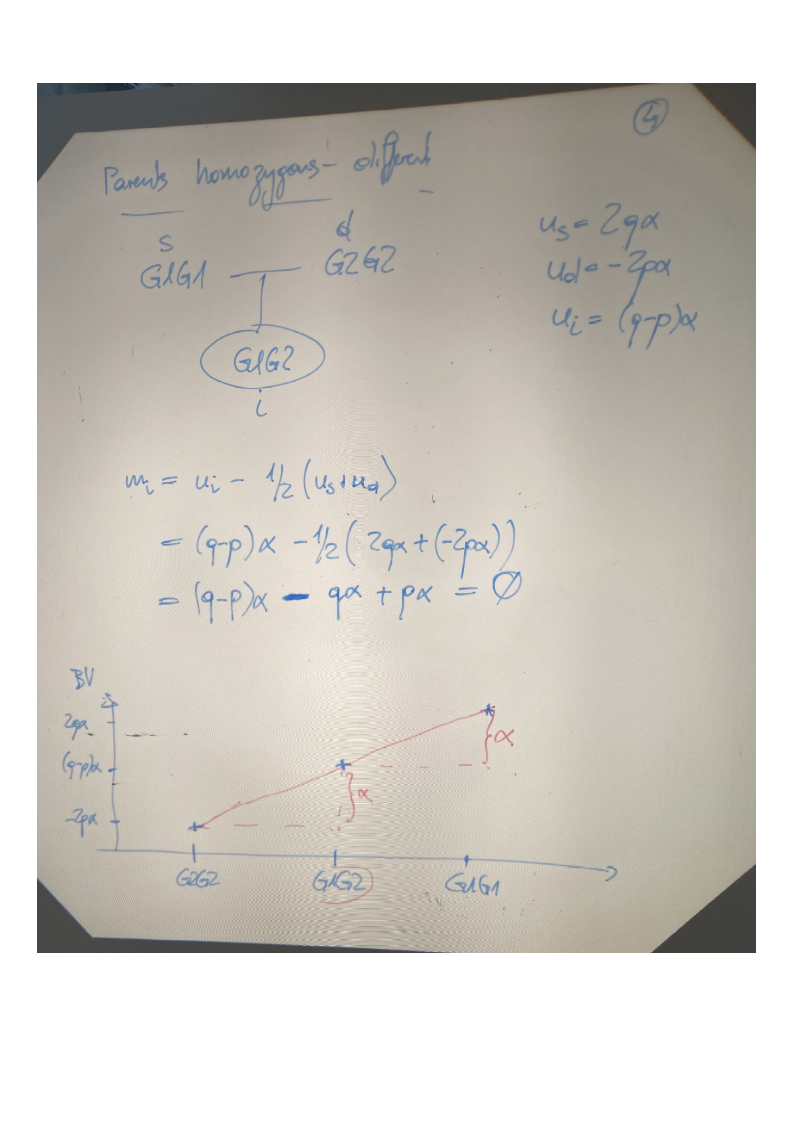 ④
Parents homozygous- different
s d
G1G1 G2G2
G1G2
i
u_s = 2qα
u_d = -2pα
u_i = (q-p)α
m_i = u_i - 1/2 (u_s + u_d)
= (q-p)α - 1/2 ( 2qα + (-2pα))
= (q-p)α - qα + pα = ∅
BV
2qα
(q-p)α
-2pα
α
α
G2G2 G1G2 G1G1